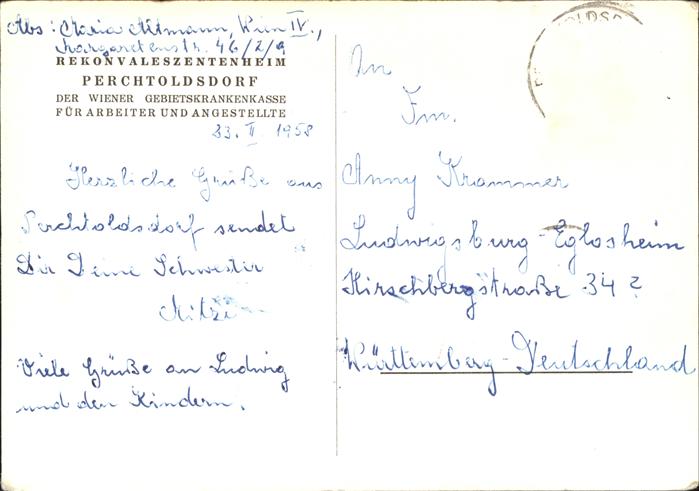 Abs: Maria Altmann, Wien IV.,
Margaretenstr. 46/2/9
REKONVALESZENTENHEIM
PERCHTOLDSDORF
DER WIENER GEBIETSKRANKENKASSE
FÜR ARBEITER UND ANGESTELLTE
23. II 1958
Herzliche Grüße aus
Perchtoldsdorf sendet
Dir Deine Schwester
Mitzi
Viele Grüße an Ludwig
und den Kindern.
OLDSD
An
Fm.
Anny Krammer
Ludwigsburg-Eglosheim
Kirschbergstraße 34
Württemberg-Deutschland